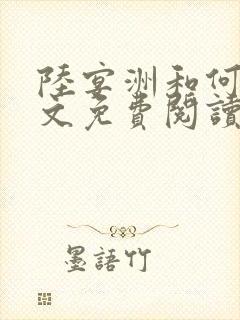 陸宴洲和何
文免費閱讀
墨語竹